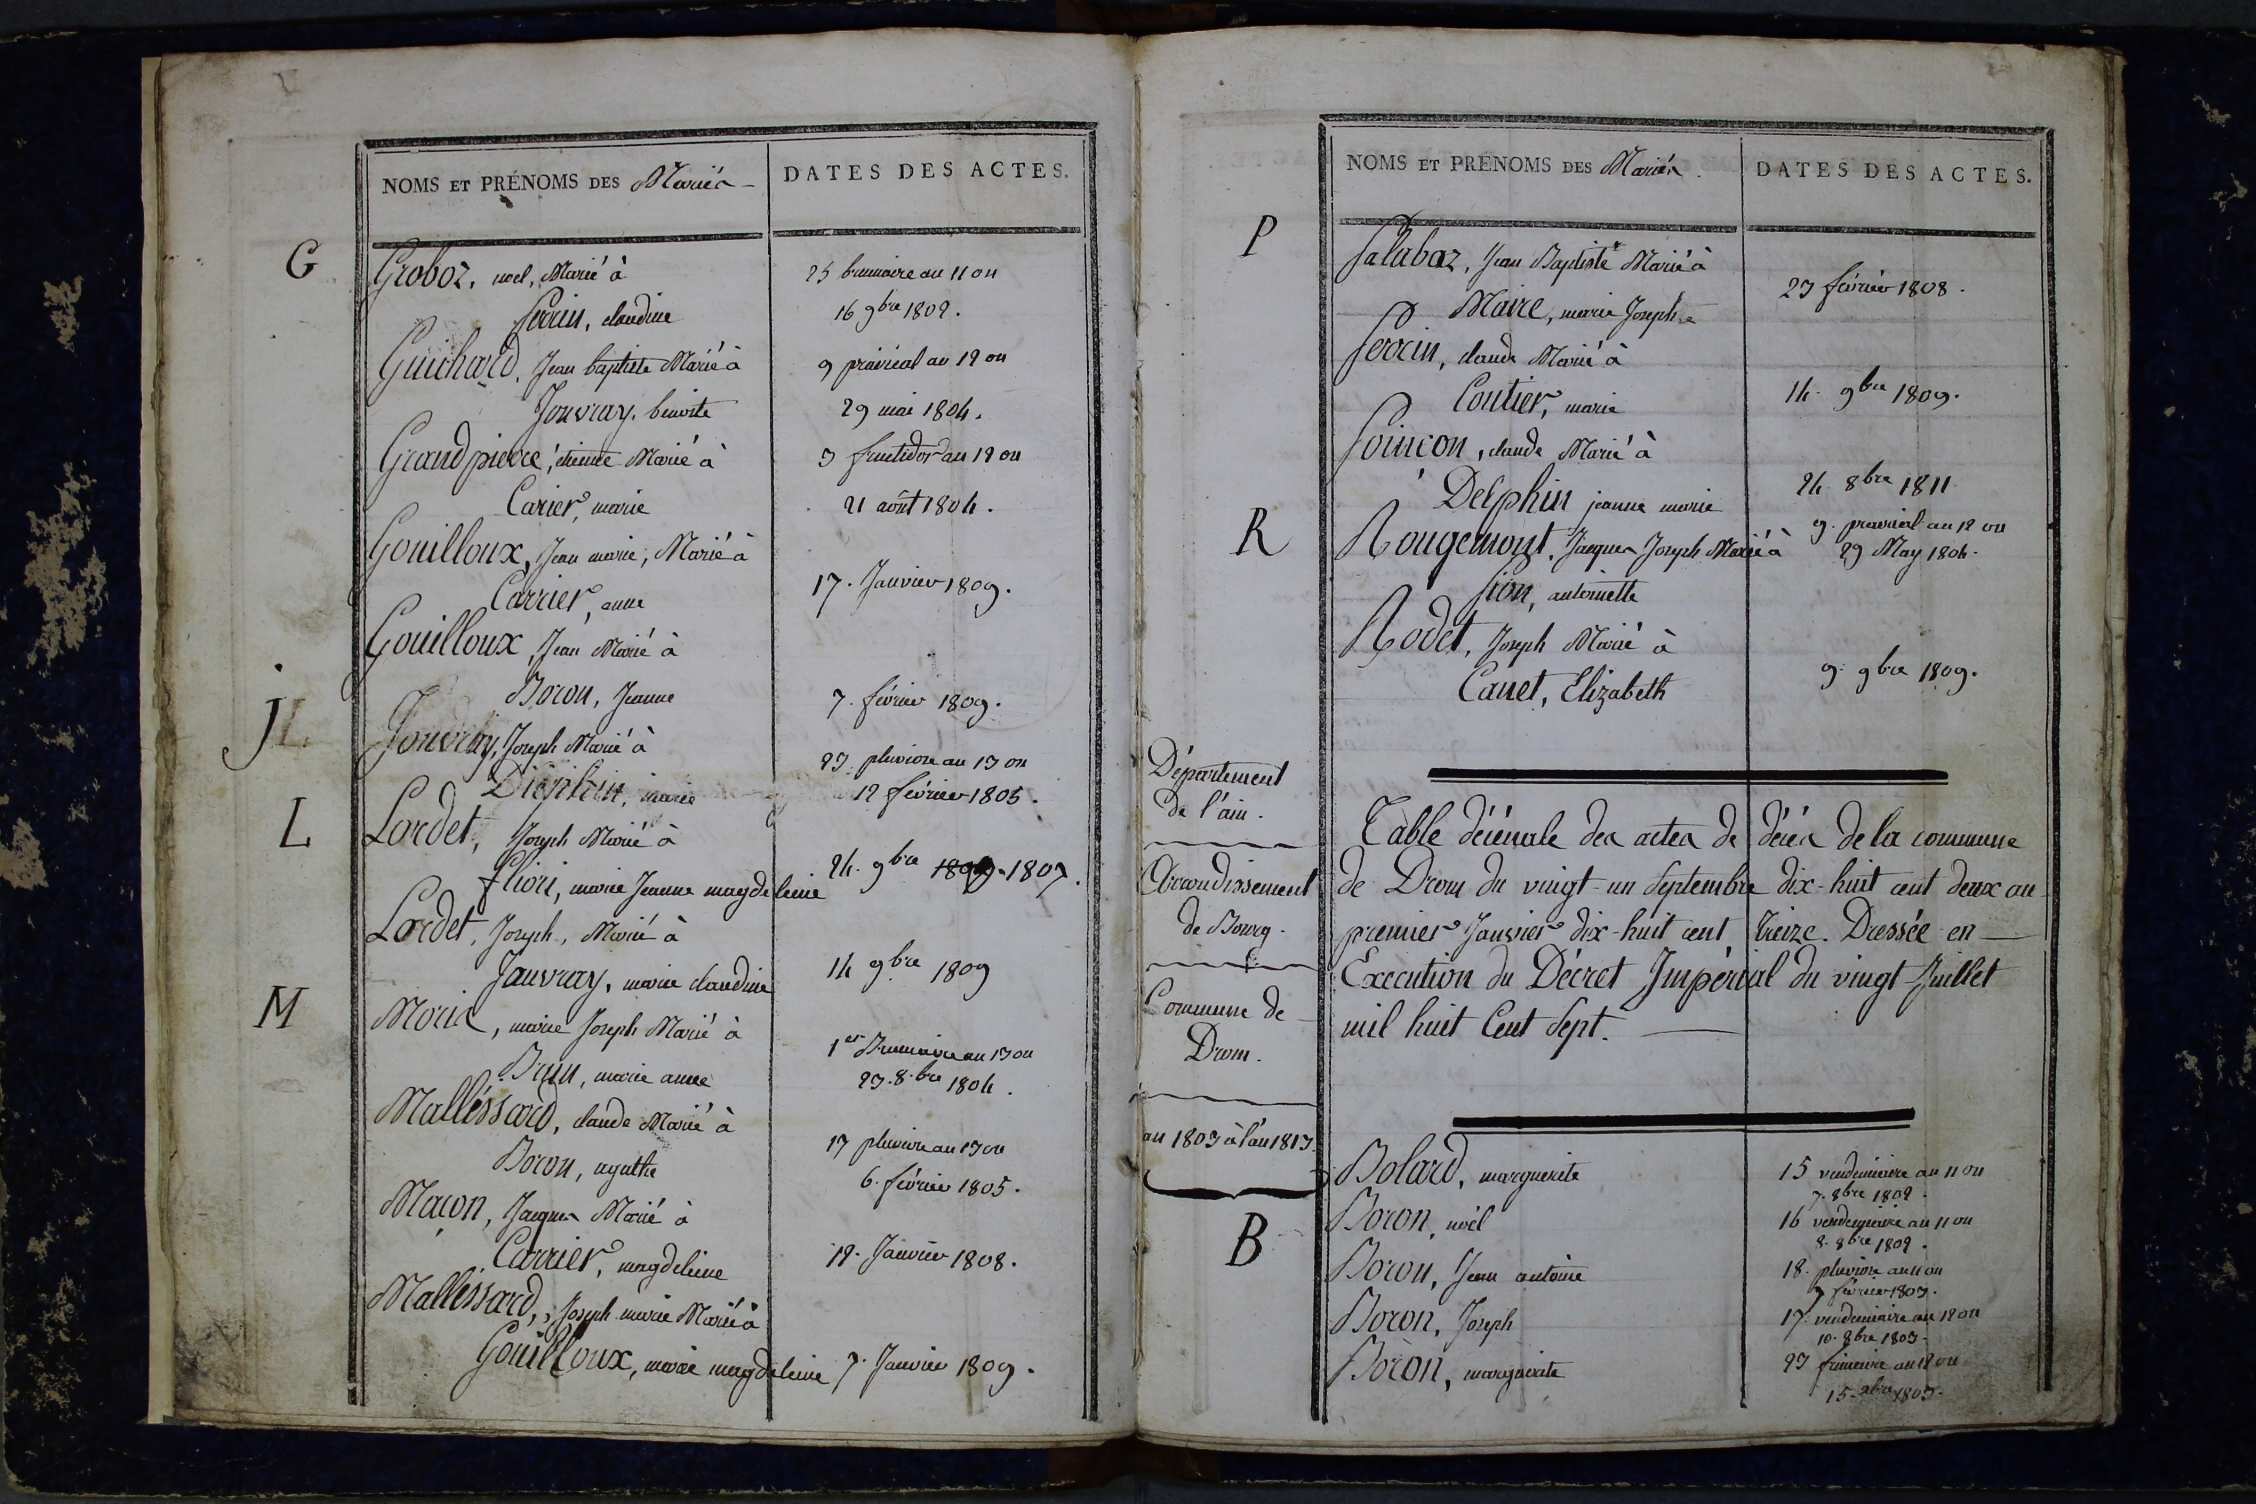 NOMS ET PRÉNOMS DES Mariés
DATES DES ACTES.
G
Groboz, noel, Marié à
25 brumaire an 11 ou
Perrin, claudine
16 9bre 1802.
Guichard, Jean baptiste Marié à
9 prairéal an 12 ou
Jouvray, benoite
29 mai 1804.
Grandpierre, étienne Marié à
3 fructidor an 12 ou
Carier, marie
21 août 1804.
Gouilloux, Jean marie, Marié à
Carrier, anne
17. Janvier 1809.
Gouilloux, Jean Marié à
Boron, Jeanne
7. février 1809.
J L
Jouvray, Joseph Marié à
23. pluviose an 13 ou
marie
12 février 1805.
L
Lordet, Joseph Marié à
marie Jeanne magdeleine
24. 9bre 1807.
Lordet, Joseph, Marié à
Jauvray, marie claudine
14 9bre 1809
M
marie Joseph Marié à
1er Brumaire an 13 ou
Brun, marie anne
23. 8.bre 1804.
Malléssard, claude Marié à
17 pluviose an 13 ou
Boron, agathe
6. février 1805.
Macon, Jacques Marié à
Carrier, magdeleine
12. Janvier 1808.
Malléssard, Joseph marie Marié à
Gouilloux, marie magdeleine
7. Janvier 1809.
NOMS ET PRÉNOMS DES Mariés.
DATES DES ACTES.
P
Palabaz, Jean Baptiste Marié à
Maire, marie Josephe
23 février 1808.
Perrin, claude Marié à
Coutier, marie
14. 9bre 1809.
Poincon, claude Marié à
Delphin jeanne marie
24. 8bre 1811
R
Rougemont, Jacques Joseph Marié à
9. prairial an 12 ou
29 May 1804.
antoinette
Rodet, Joseph Marié à
Canet, Elizabeth
9. 9bre 1809.
Département
de l'ain.
Arrondissement
de Bourg.
Commune de
Drom.
an 1803 à l'an 1813.
Table décénale des actes de décés de la commune
de Drom du vingt-un Septembre dix-huit cent deux au
premier Janvier dix-huit cent treize. Dressée en
Execution du Décret Impérial du vingt Juillet
mil huit Cent Sept.
B
Bolard, marguerite
15 vendemiaire an 11 ou
7. 8bre 1802.
Boron, noël
16 vendemiaire an 11 ou
8. 8bre 1802.
Boron, Jean antoine
18. pluviose an 11 ou
7 février 1803.
Boron, Joseph
17. vendemiaire an 12 ou
10. 8bre 1803.
Boron, marguerite
23 frimaire an 12 ou
15. xbre 1803.